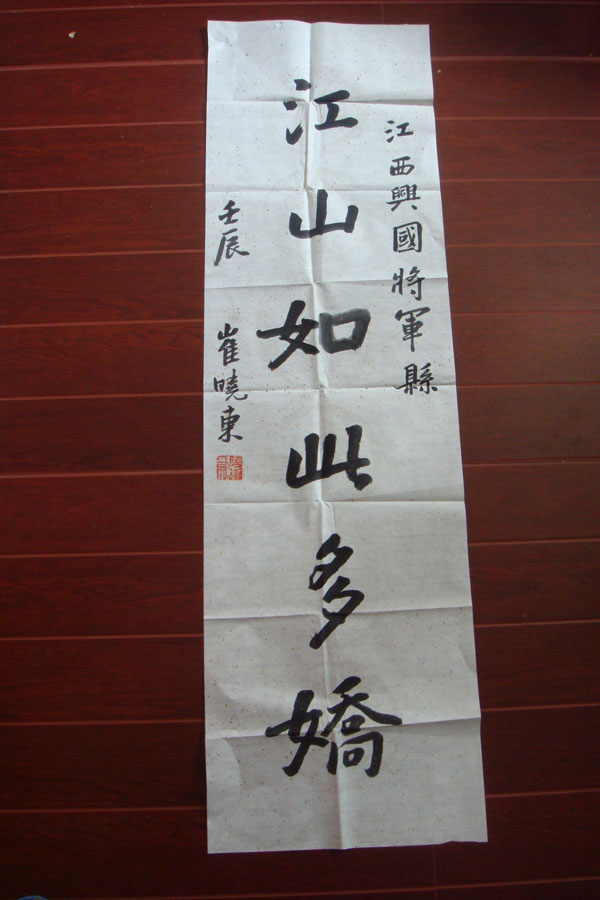 江西興國將軍縣
江山如此多嬌
壬辰 崔曉東